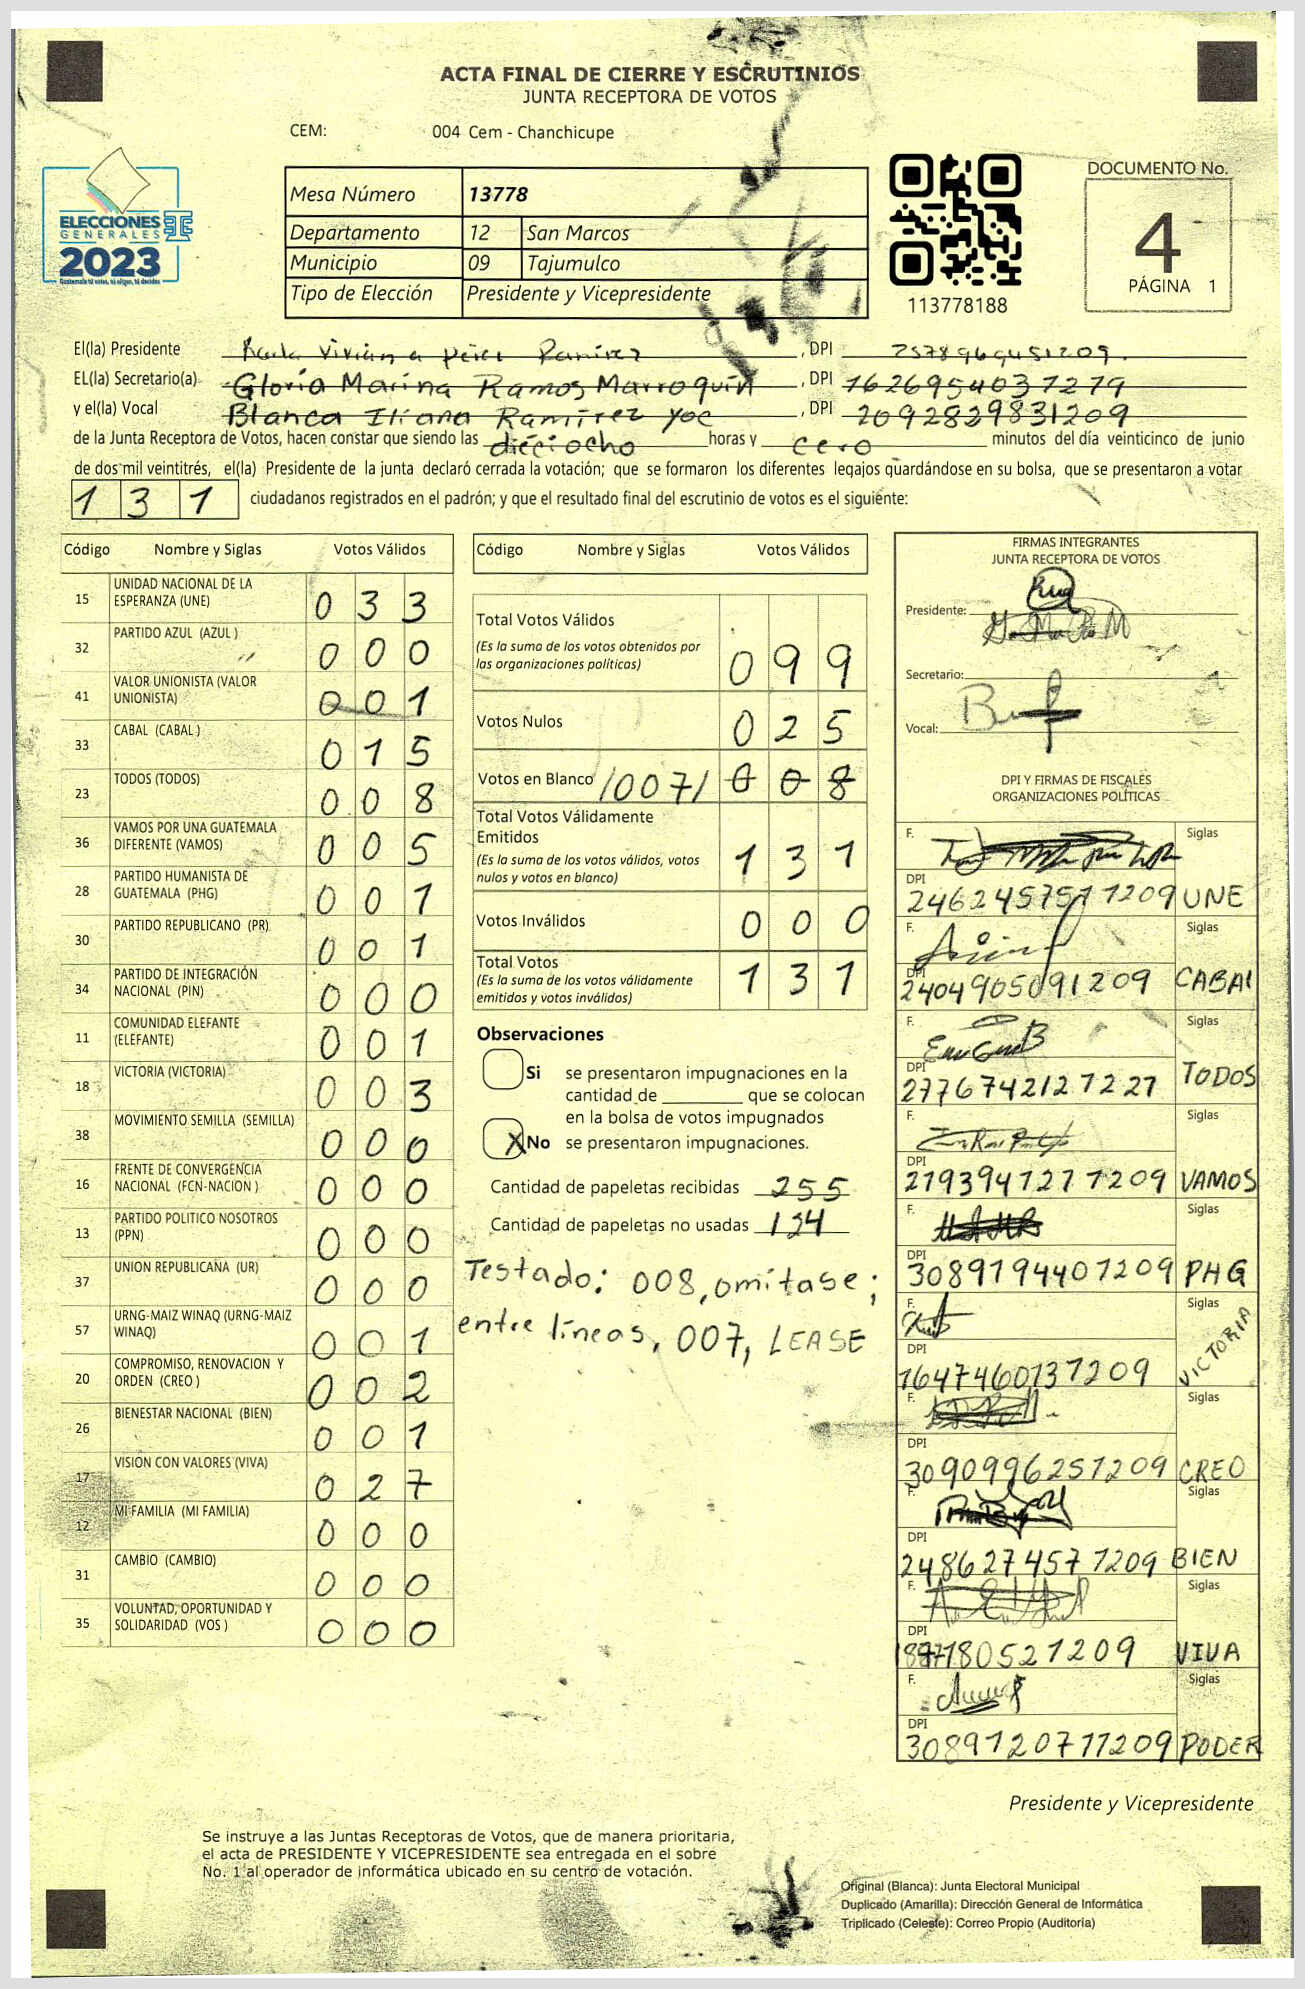 ACTA FINAL DE CIERRE Y ESCRUTINIOS
JUNTA RECEPTORA DE VOTOS
CEM: 004 Cem - Chanchicupe
ELECCIONES
GENERALES
2023
Guatemala tú votas, tú eliges, tú decides
Mesa Número 13778
Departamento 12 San Marcos
Municipio 09 Tajumulco
Tipo de Elección Presidente y Vicepresidente
113778188
DOCUMENTO No.
4
PÁGINA 1
El(la) Presidente Karla Viviana Pérez Ramírez, DPI
EL(la) Secretario(a) Gloria Marina Ramos Marroquín, DPI 1626954031279
y el(la) Vocal Blanca Iliana Ramírez Yoc, DPI 2092829831209
de la Junta Receptora de Votos, hacen constar que siendo las dieciocho horas y cero minutos del día veinticinco de junio
de dos mil veintitrés, el(la) Presidente de la junta declaró cerrada la votación; que se formaron los diferentes legajos quardándose en su bolsa, que se presentaron a votar
131 ciudadanos registrados en el padrón; y que el resultado final del escrutinio de votos es el siguiente:
Código Nombre y Siglas Votos Válidos
15 UNIDAD NACIONAL DE LA ESPERANZA (UNE) 033
32 PARTIDO AZUL (AZUL ) 000
41 VALOR UNIONISTA (VALOR UNIONISTA) 001
33 CABAL (CABAL ) 015
23 TODOS (TODOS) 008
36 VAMOS POR UNA GUATEMALA DIFERENTE (VAMOS) 005
28 PARTIDO HUMANISTA DE GUATEMALA (PHG) 001
30 PARTIDO REPUBLICANO (PR) 001
34 PARTIDO DE INTEGRACIÓN NACIONAL (PIN) 000
11 COMUNIDAD ELEFANTE (ELEFANTE) 001
18 VICTORIA (VICTORIA) 003
38 MOVIMIENTO SEMILLA (SEMILLA) 000
16 FRENTE DE CONVERGENCIA NACIONAL (FCN-NACION ) 000
13 PARTIDO POLITICO NOSOTROS (PPN) 000
37 UNION REPUBLICANA (UR) 000
57 URNG-MAIZ WINAQ (URNG-MAIZ WINAQ) 001
20 COMPROMISO, RENOVACION Y ORDEN (CREO ) 002
26 BIENESTAR NACIONAL (BIEN) 001
17 VISION CON VALORES (VIVA) 027
12 MI FAMILIA (MI FAMILIA) 000
31 CAMBIO (CAMBIO) 000
35 VOLUNTAD, OPORTUNIDAD Y SOLIDARIDAD (VOS ) 000
Código Nombre y Siglas Votos Válidos
Total Votos Válidos
(Es la suma de los votos obtenidos por las organizaciones políticas) 099
Votos Nulos 025
Votos en Blanco /007/ 008
Total Votos Válidamente Emitidos
(Es la suma de los votos válidos, votos nulos y votos en blanco) 131
Votos Inválidos 000
Total Votos
(Es la suma de los votos válidamente emitidos y votos inválidos) 131
Observaciones
Si se presentaron impugnaciones en la
cantidad de ________ que se colocan
en la bolsa de votos impugnados
X No se presentaron impugnaciones.
Cantidad de papeletas recibidas 255
Cantidad de papeletas no usadas 124
Testado: 008, omítase;
entre líneas, 007, LEASE
FIRMAS INTEGRANTES
JUNTA RECEPTORA DE VOTOS
Presidente:
Secretario:
Vocal:
DPI Y FIRMAS DE FISCALES
ORGANIZACIONES POLÍTICAS
F. Siglas
DPI 2462457571209 UNE
F. Siglas
DPI 2404905091209 CABAL
F. Siglas
DPI 2776742127227 TODOS
F. Siglas
DPI 2193947271209 VAMOS
F. Siglas
DPI 3089194401209 PHG
F. Siglas
DPI 1647460131209 VICTORIA
F. Siglas
DPI 3090996251209 CREO
F. Siglas
DPI 2486274571209 BIEN
F. Siglas
DPI VIVA
F. Siglas
DPI 3089120711209 PODER
Presidente y Vicepresidente
Se instruye a las Juntas Receptoras de Votos, que de manera prioritaria,
el acta de PRESIDENTE Y VICEPRESIDENTE sea entregada en el sobre
No. 1 al operador de informática ubicado en su centro de votación.
Original (Blanca): Junta Electoral Municipal
Duplicado (Amarilla): Dirección General de Informática
Triplicado (Celeste): Correo Propio (Auditoría)